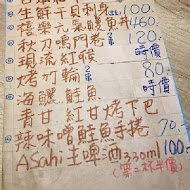 生鮮干貝刺身 100
禧樂元氣鰻魚丼 460.
秋刀鳴門卷 120.
現流紅條 時價
烤竹輪 80.
海鱺 鮭魚 時價
青甘 紅甘烤下巴
辣味噌鮭魚手捲 70.
Asahi 生啤酒 330ml 100.
(第二杯半價)